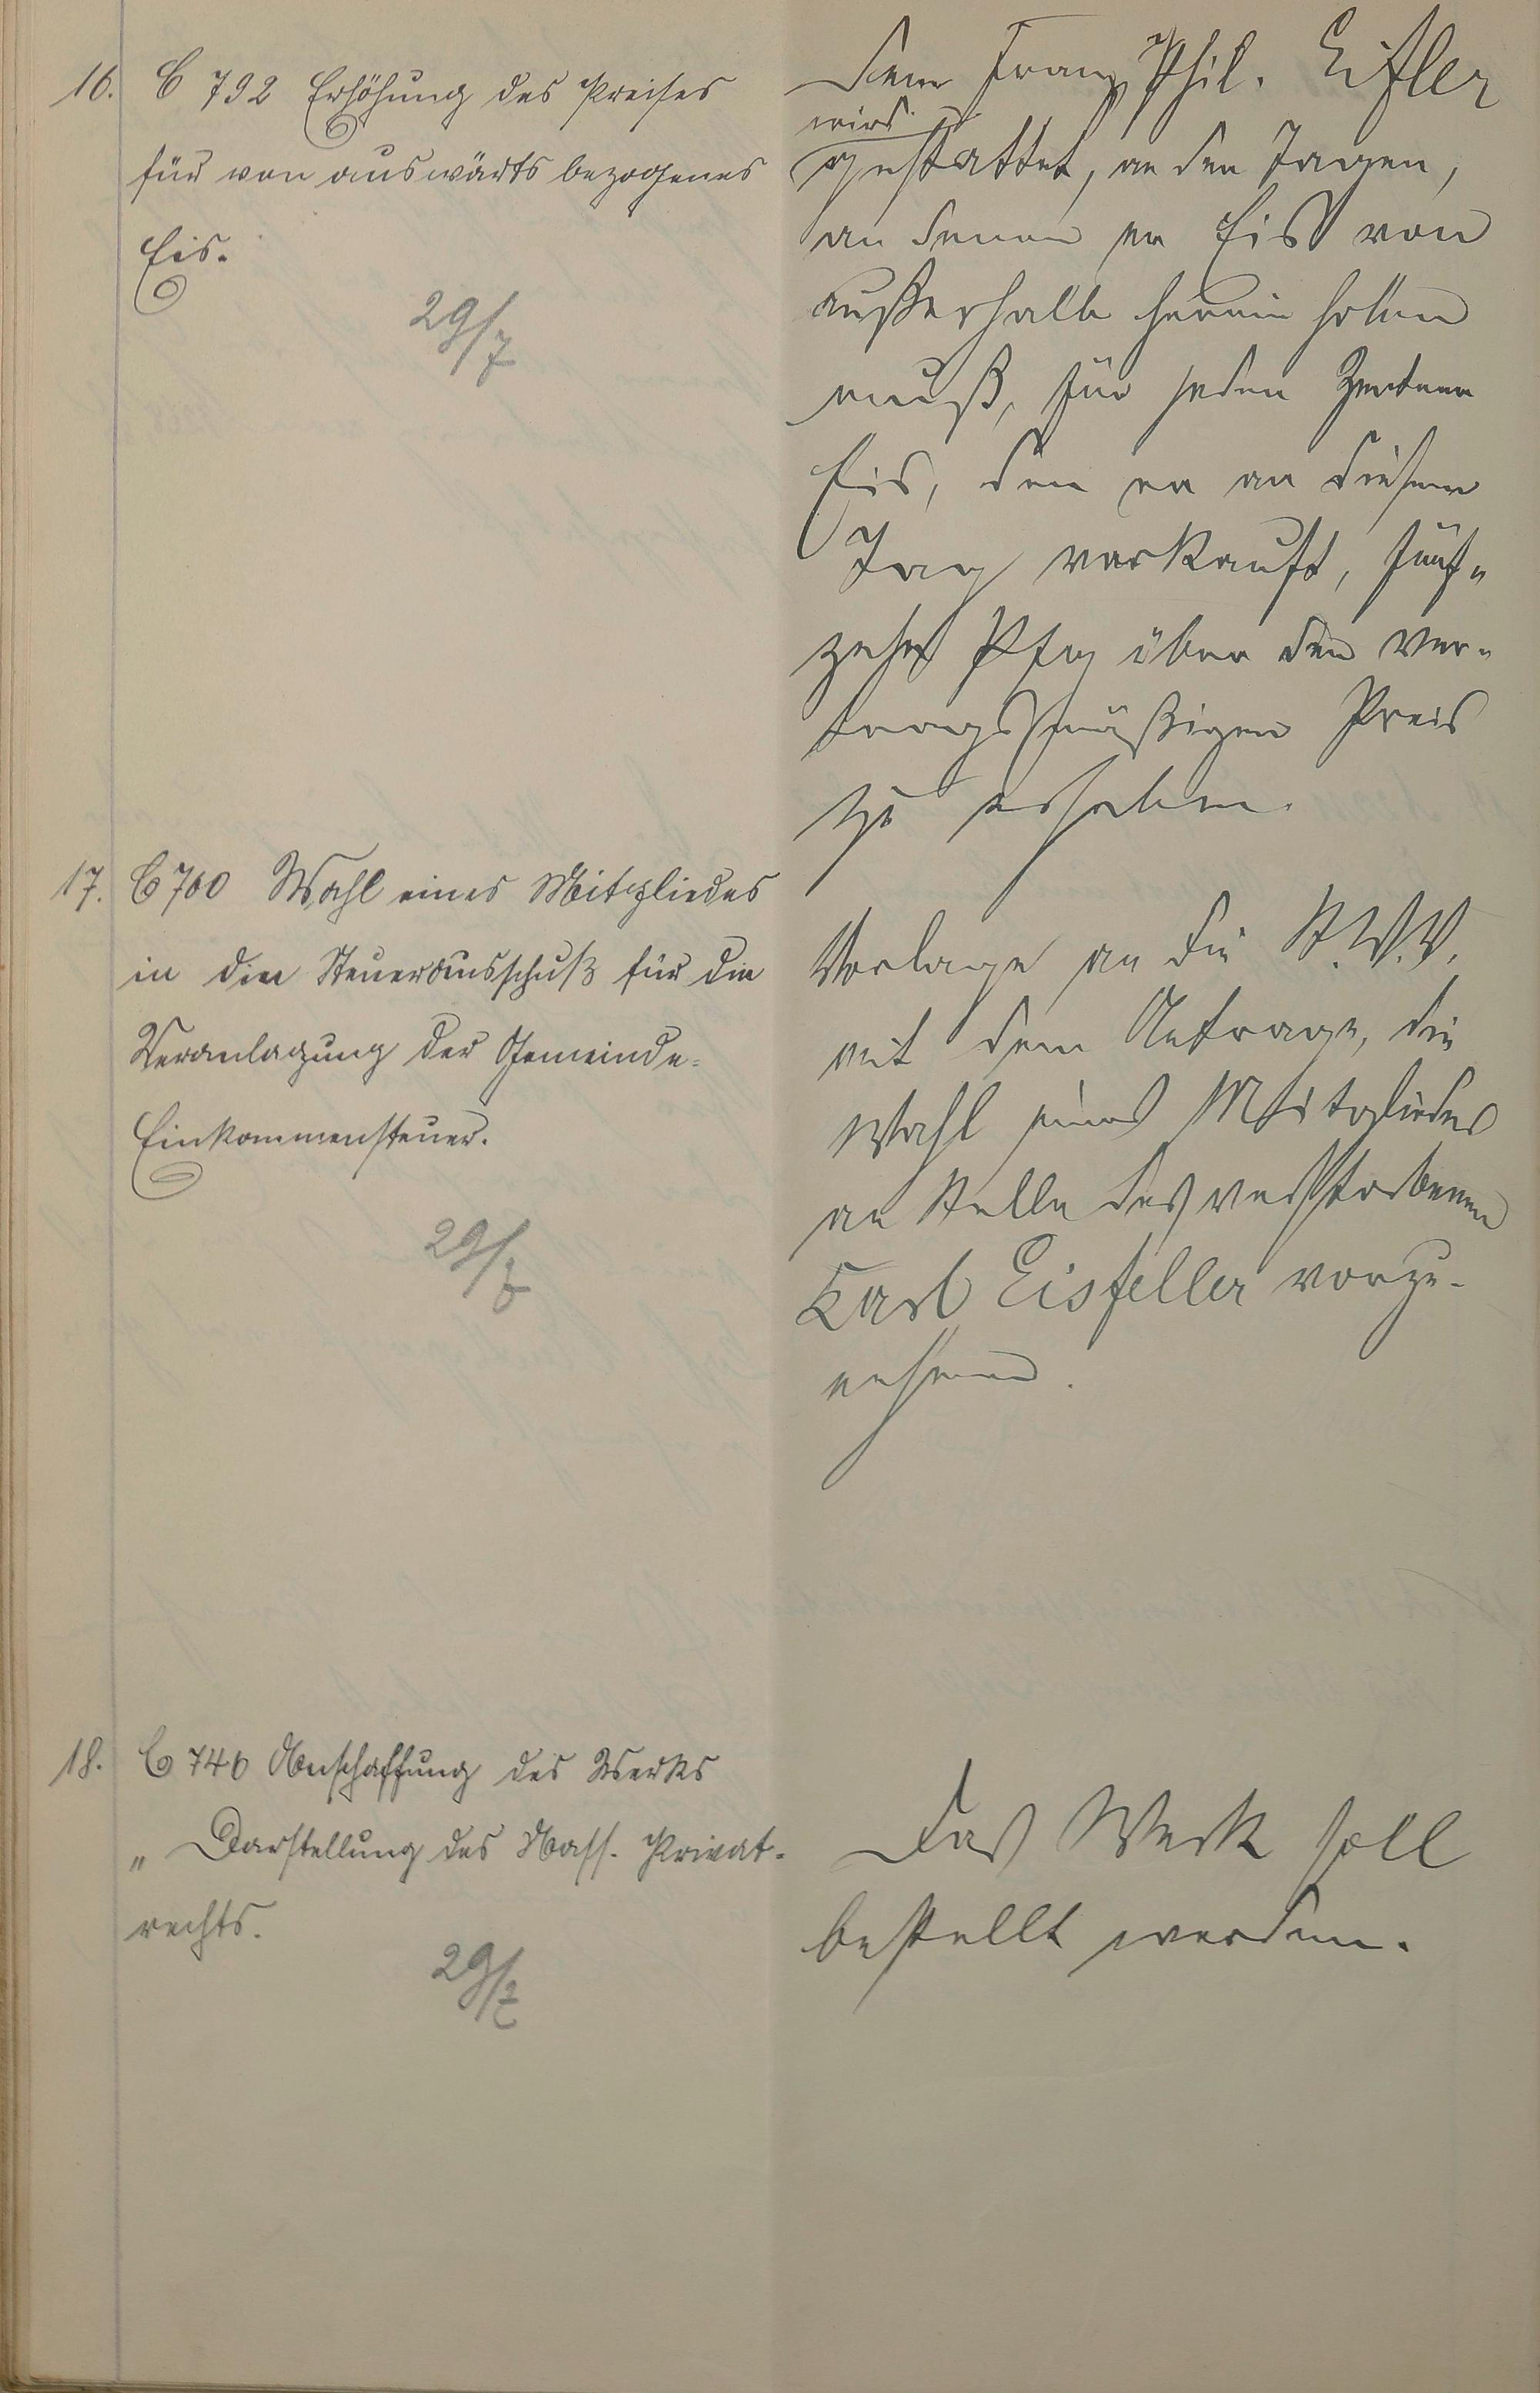 16. C 792 Erhöhung des Preises
für von auswärts bezogenes
Eis.
29/7
Dem Franz Phil. Eifler
wird
gestattet, an den Tagen,
an denen er Eis von
außerhalb herein holen
muß, für jeden Zentner
Eis, den er an diesem
Tag verkauft, fünf-
zehn Pfg über den ver-
tragsmäßigen Preis
zu erheben.
17. C 700 Wahl eines Mitgliedes
in den Steuerausschuß für die
Veranlagung der Gemeinde-
Einkommensteuer.
29/7
Vorlage an die St.V.V.
mit dem Antrage, die
Wahl eines Mitgliedes
an Stelle des verstorbenen
Karl Eisfeller vorzu-
nehmen.
18. C 746 Anschaffung des Werks
„Darstellung des Nass. Privat-
rechts.
29/7
Das Werk soll
bestellt werden.